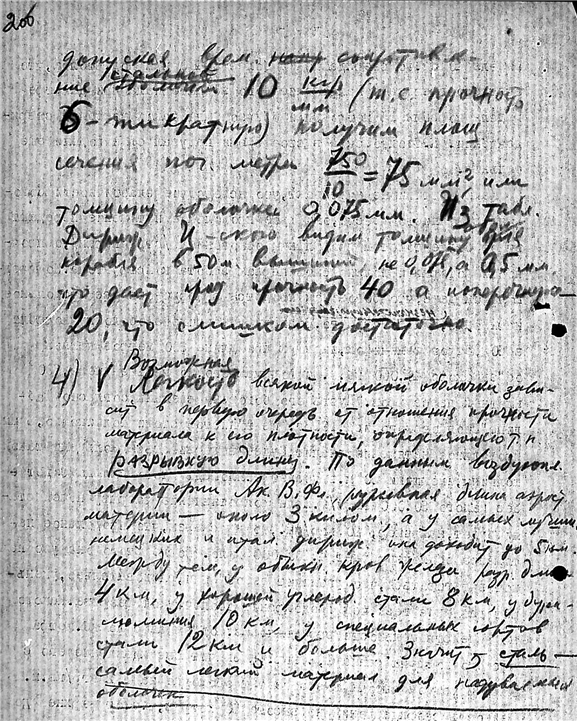 206
допуская врем. сопротивле-
ние стальной оболочки 10 кгр/мм (т.е. прочность
6-тикратную) получим площ
сечения пог. метра 750/10 = 75 мм², или
толщину оболочки 0,075 мм. Из табл.
Дириж. Ц-ского видим толщину обол
корабля в 50 м. вышиной, не 0,075, а 0,5 мм
что дает прод прочность 40 а поперечную
20, что слишком достаточно.
4) Возможная
Легкость всякой мягкой оболочки зави-
сит в первую очередь от отношения прочности
материала к его плотности, определяющего т н
разрывную длину. По данным воздухопл.
лаборатории Ак. В. Фл. разрывная длина аэрост
материи — около 3 килом, а у самых лучших
немецких и итал. дириж. она доходит до 5 км.
Между тем, у обыкн. кров железа разр. длина
4 км, у хорошей углерод. стали 8 км, у дура-
люминия 10 км, у специальных сортов
стали 12 км и больше. Значит, сталь —
самый легкий материал для надуваемых
оболочек